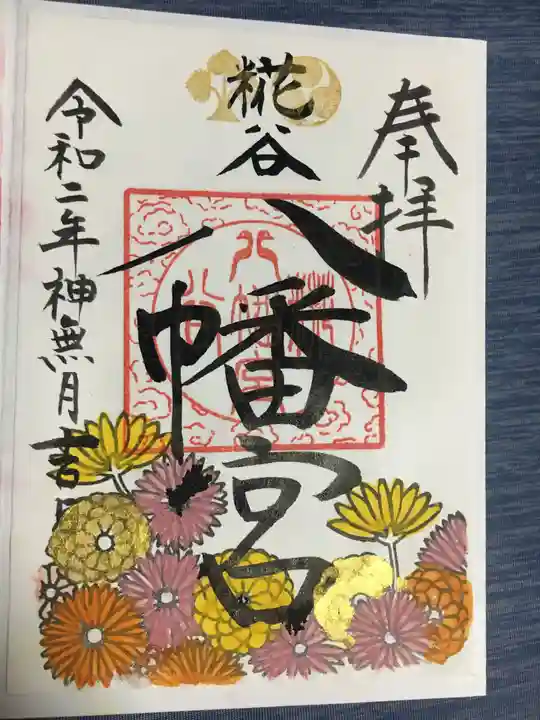 奉拝
糀谷
八幡宮
令和二年神無月吉日